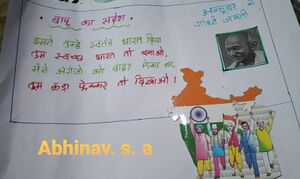 बापू का संदेश
अक्टूबर 2
गांधी जयंती
हमने तुम्हे स्वतंत्र भारत दिया
तुम स्वच्छ भारत तो बनाओ,
मैंने अंग्रेजों को बाहर फेंका था,
तुम कूड़ा फेंककर तो दिखाओ।
Abhinav. s. a